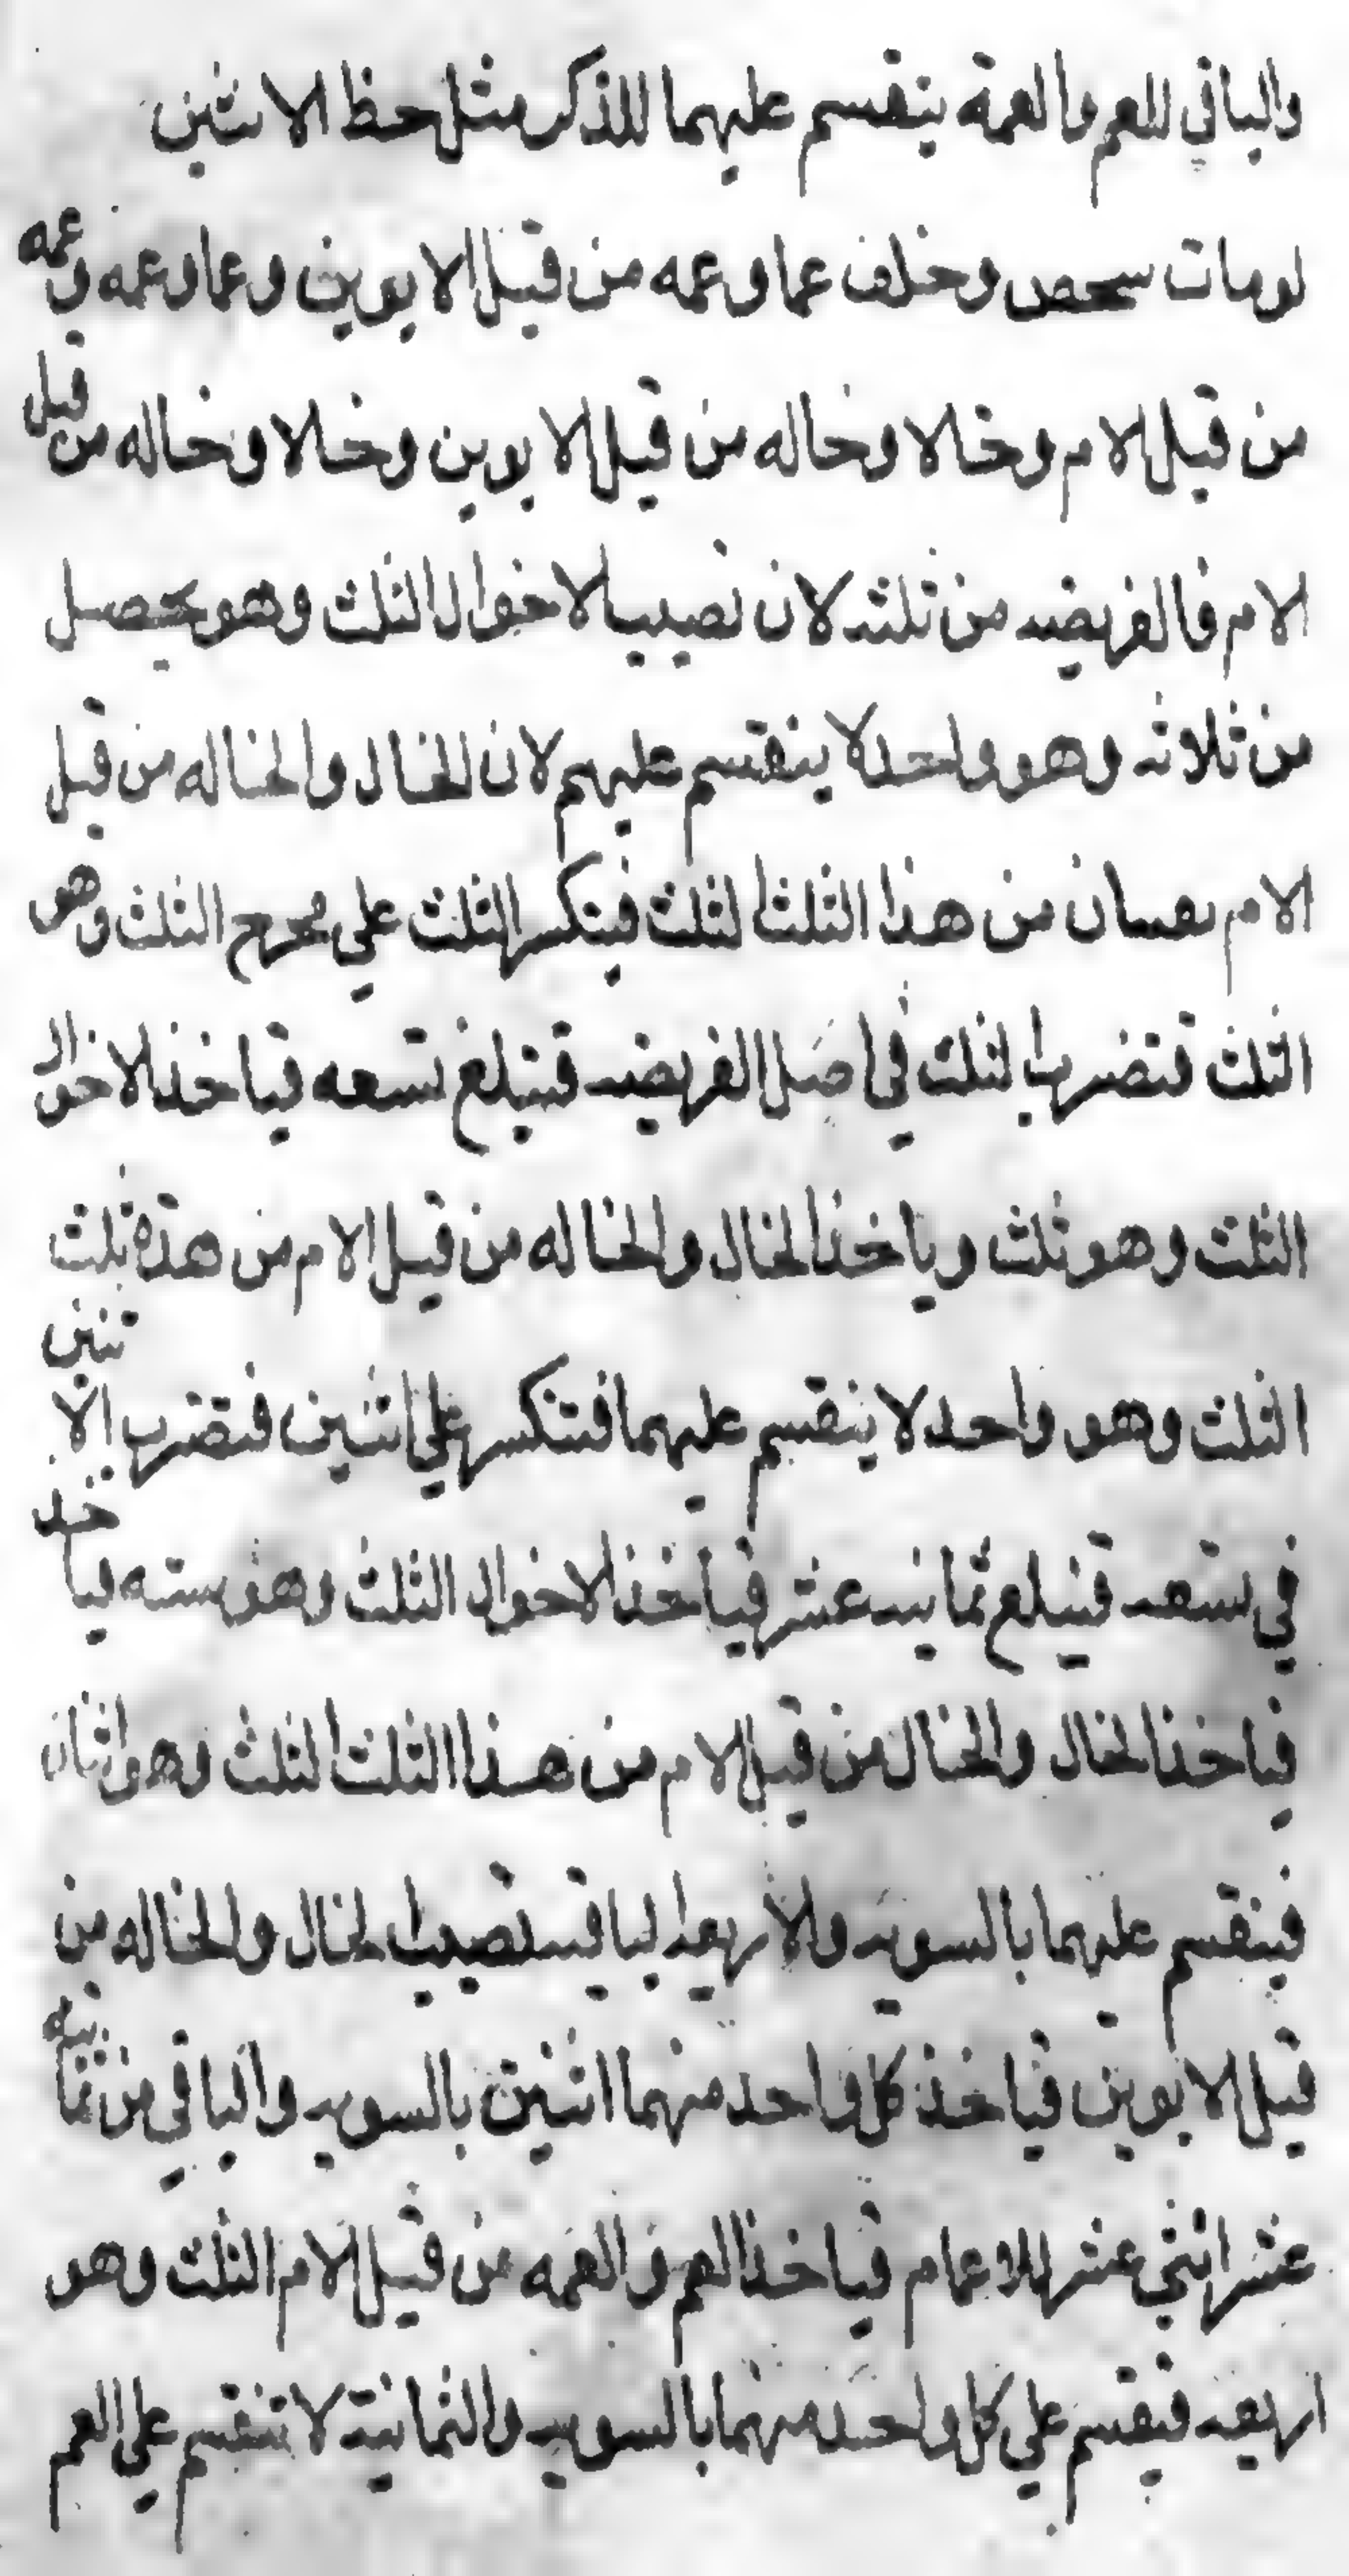 والباقي للعم والعمة ينقسم عليهما للذكر مثل حظ الانثين
لومات سحص وخلف عما وعمه من قبل الابوين وعما وعمه وعمه
من قبل الام وخالا وخاله من قبل الابوين وخالا وخاله من قبل
الام فالفريضه من ثلثه لان نصيب الاخوال الثلث وهو يحصل
من ثلاثه وهو واحد لا ينقسم عليهم لان للخال والخاله من قبل
الام من هذا الثلث الثلث فينكسر الثلث علي مخرج الثلث وهو
الثلث فتضرب الثلث في اصل الفريضه فتبلغ تسعه فياخذ الاخوال
الثلث وهو ثلث وياخذ الخال والخاله من قبل الام من هذه ثلث
الثلث وهو واحد لا ينقسم عليهما فتنكسر علي اثنين فتضرب الاثنين
في تسعه فتبلغ ثمانيه عشر فياخذ الاخوال الثلث وهو سته ياخذ
فياخذ الخال والخاله من قبل الام من هذا الثلث الثلث وهو اثنان
فينقسم عليهما بالسويه والاربعه الباقيه نصيب الخال والخاله من
قبل الابوين فياخذ كل واحد منهما اثنين بالسويه والباقي من ثمانيه
عشر اثني عشر للاعمام فياخذ العم والعمه من قبل الام الثلث وهو
اربعه فيقسم علي كل واحد منهما بالسويه والثمانية لا تنقسم علي العم